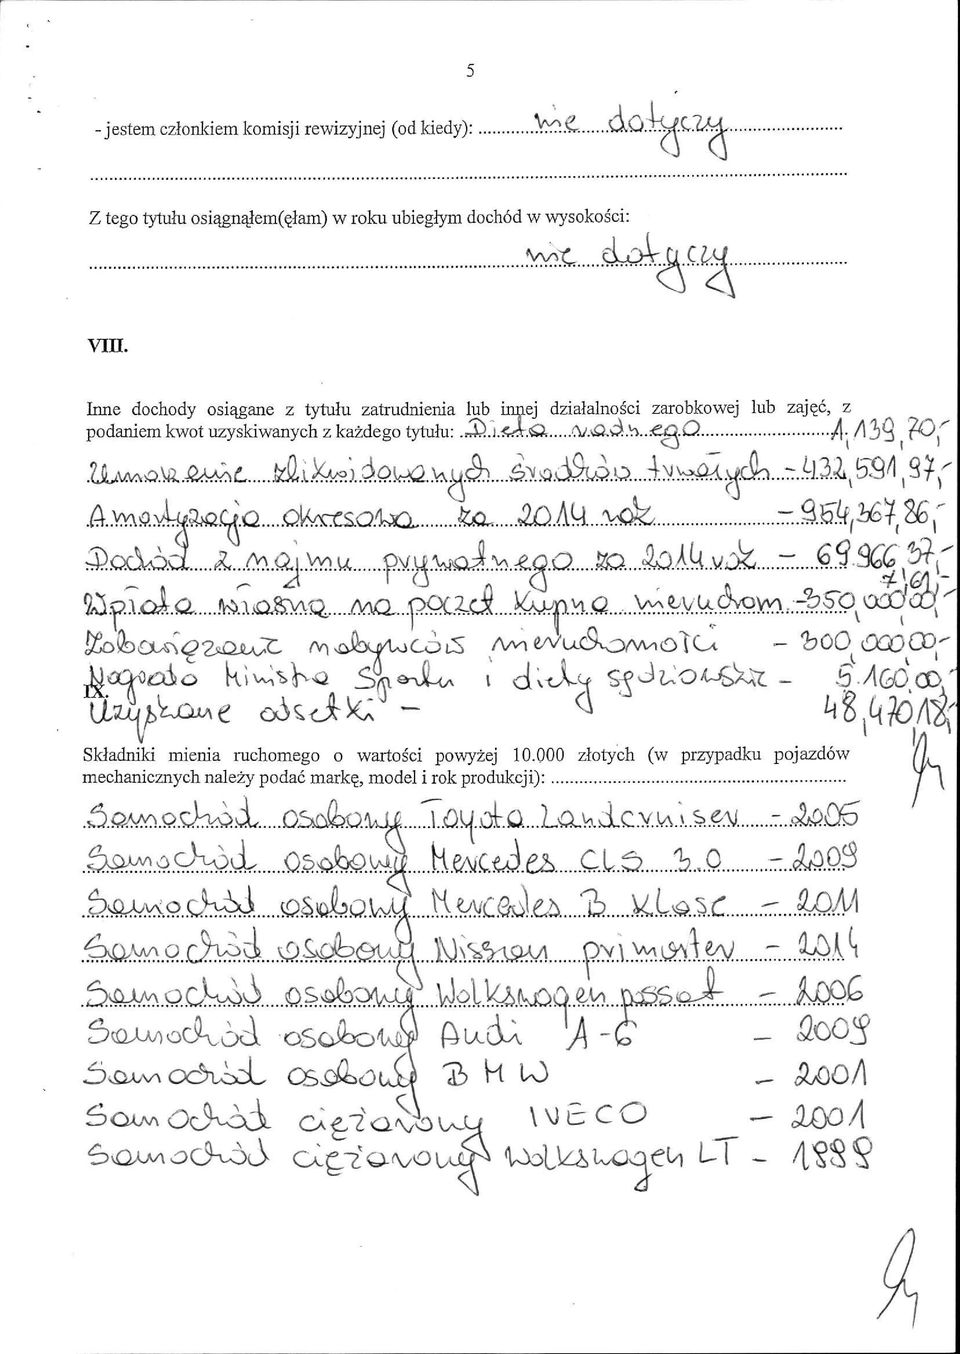 5
- jestem członkiem komisji rewizyjnej (od kiedy): ............nie.....dotyczy........................
........................................................................................
Z tego tytułu osiągnąłem(ęłam) w roku ubiegłym dochód w wysokości:
........................................nie....dotyczy........................
VIII.
Inne dochody osiągane z tytułu zatrudnienia lub innej działalności zarobkowej lub zajęć, z
podaniem kwot uzyskiwanych z każdego tytułu: ..Dieta.....radnego..................1,139,70,-
Umorzenie zlikwidowanych środków trwałych - 432,591,97,-
Amortyzacja okresowa za 2014 rok - 954,367,86,-
Dochód z najmu prywatnego za 2014 rok - 69.966,37,-
7,61,-
Wpłata własna na poczet kupna nieruchom. - 350,000,00,-
Zobowiązanie nabywców nieruchomości - 300,000,00,-
Nagroda Ministra Sportu i diety sędziowskie - 5.160,00,-
IX.
Uzyskane odsetki - 48,470,18,-
Składniki mienia ruchomego o wartości powyżej 10.000 złotych (w przypadku pojazdów
mechanicznych należy podać markę, model i rok produkcji): ..............................................
Samochód osobowy Toyota Landcruiser - 2005
Samochód osobowy Mercedes CLS 3.0 - 2009
Samochód osobowy Mercedes B klasc - 2011
Samochód osobowy Nissan primaster - 2014
Samochód osobowy Wolkswagen passat - 2006
Samochód osobowy Audi A-6 - 2009
Samochód osobowy BMW - 2001
Samochód ciężarowy IVECO - 2001
Samochód ciężarowy Wolkswagen LT - 1999